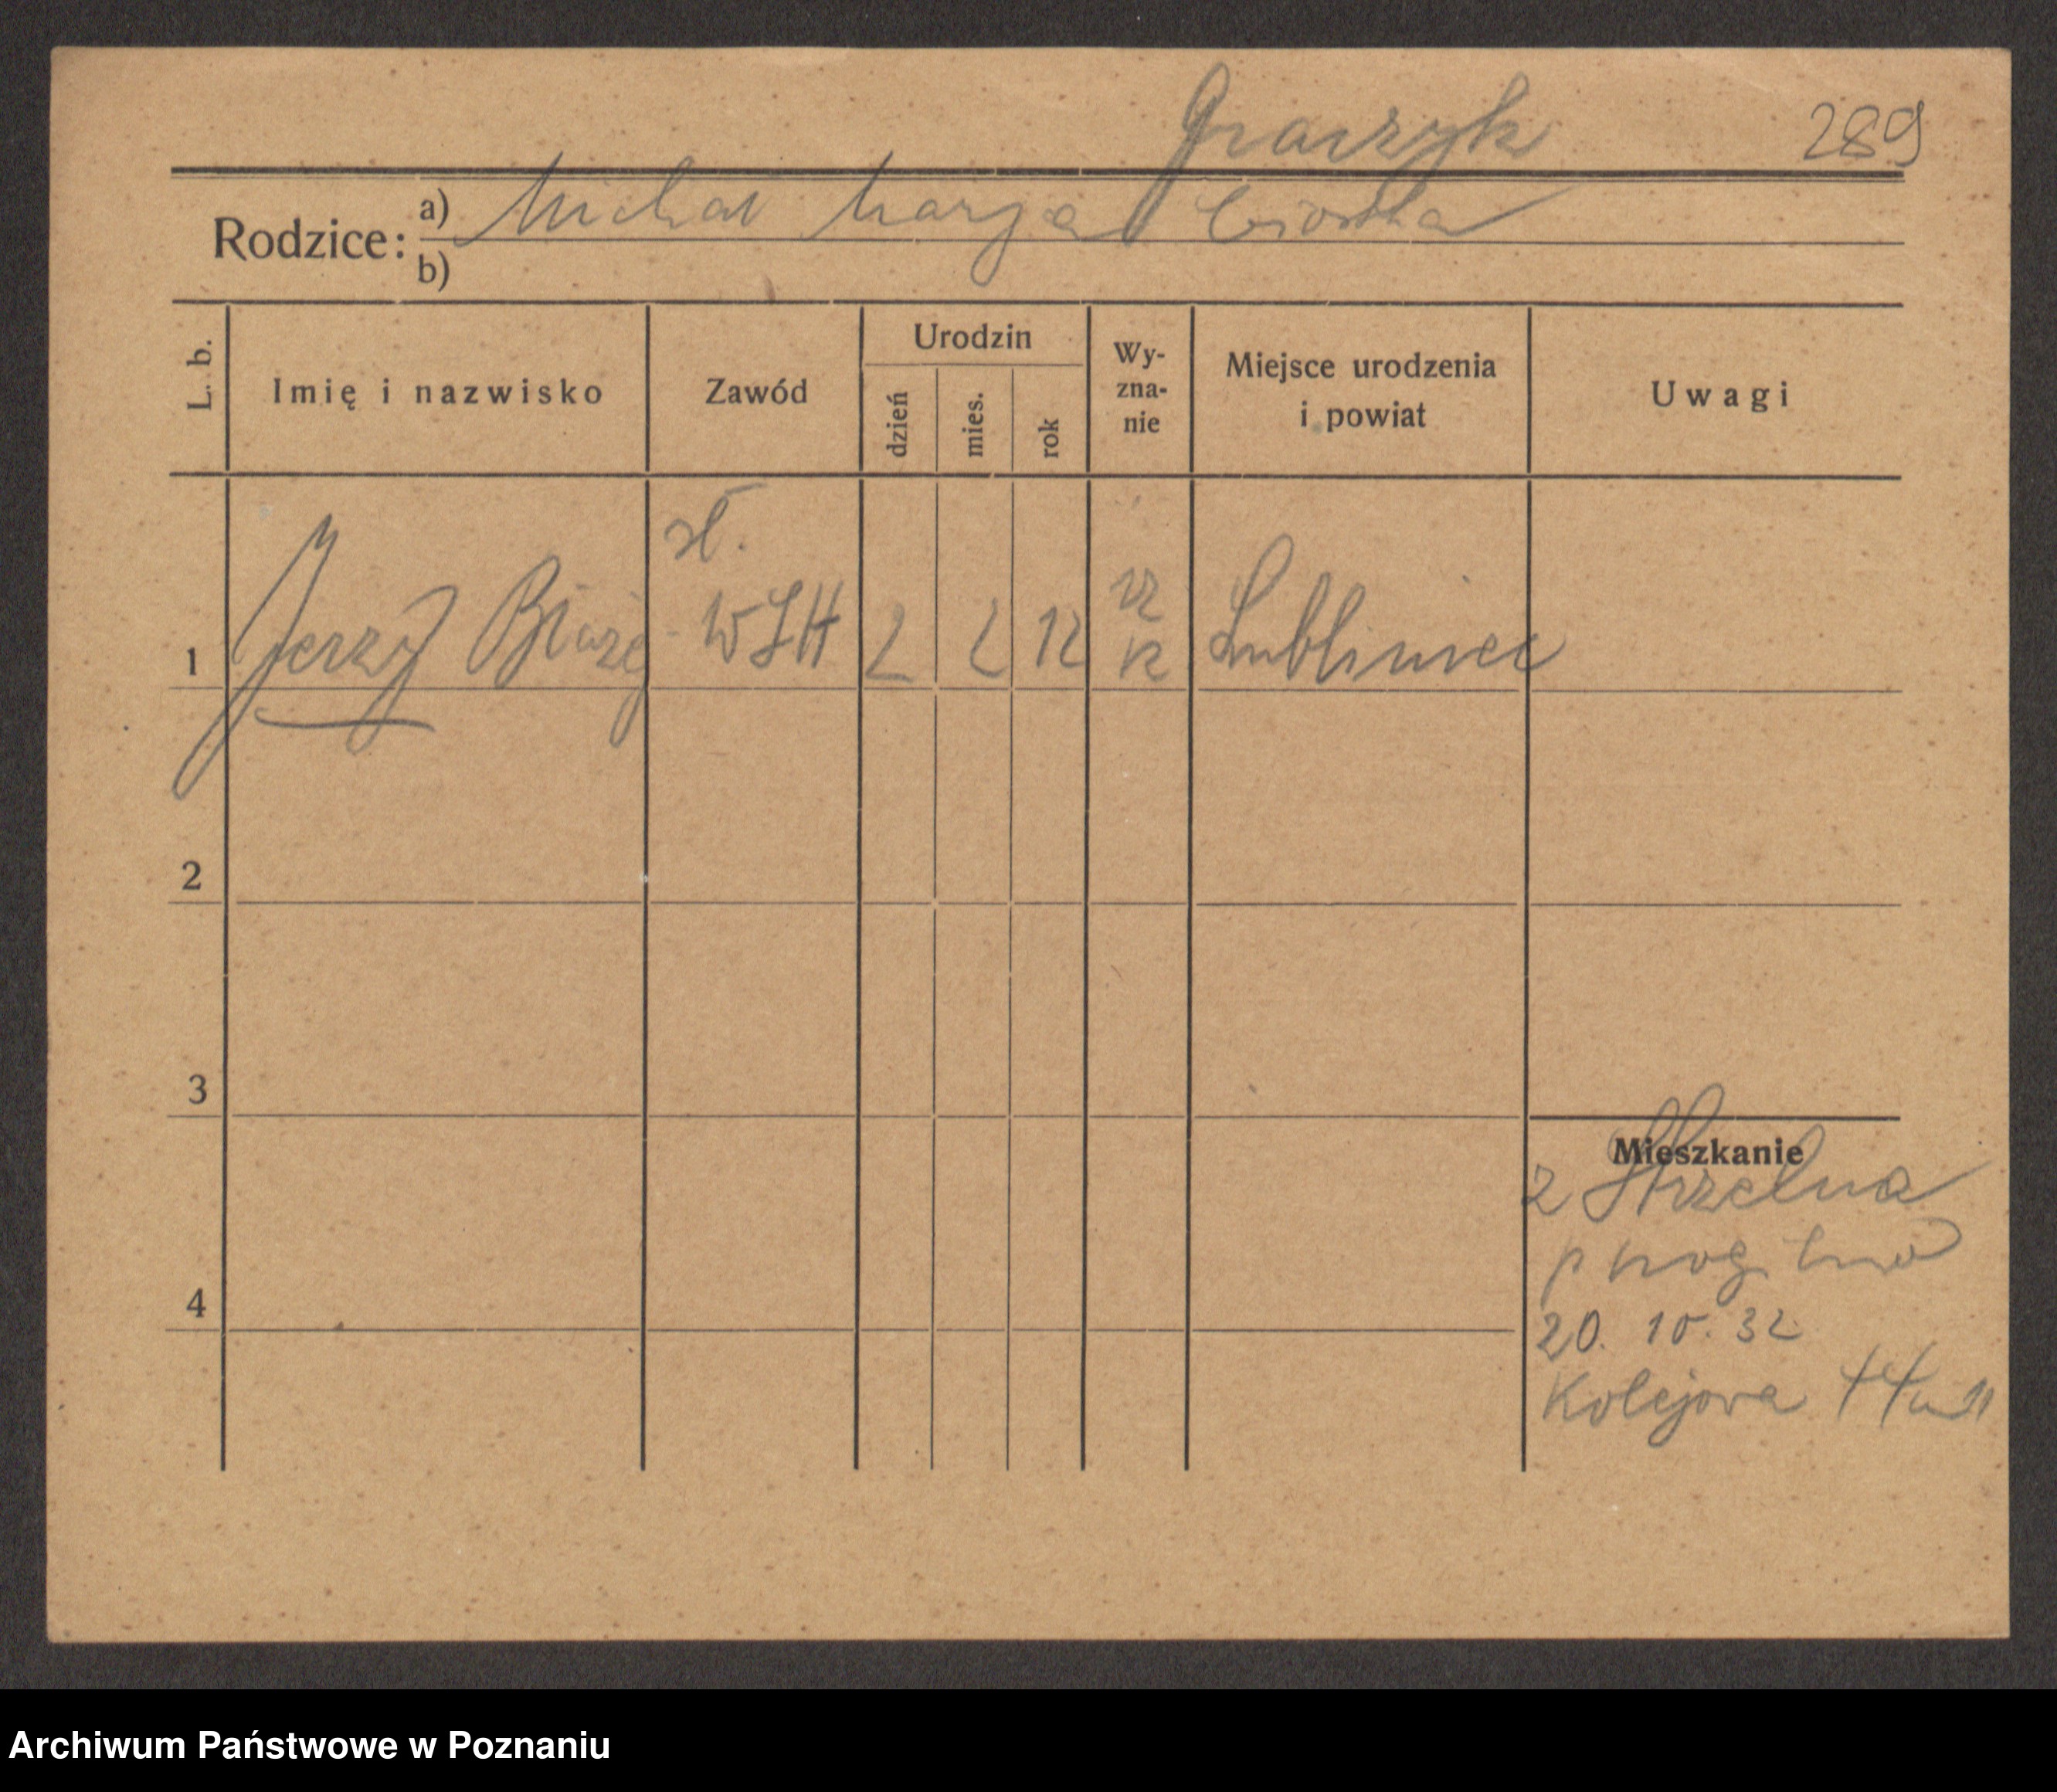 Graczyk 289
Rodzice: a) Michał Marja Cioska
b)
L. b. Imię i nazwisko Zawód Urodzin dzień mies. rok Wy-zna-nie Miejsce urodzenia i powiat Uwagi
sł.
1 Jerzy Błażej WSH 2 2 12 rz k Lubliniec
2
3
Mieszkanie
z Strzelna
p Mogilno
20. 10. 32
Kolejowa 44 m 11
4
Archiwum Państwowe w Poznaniu